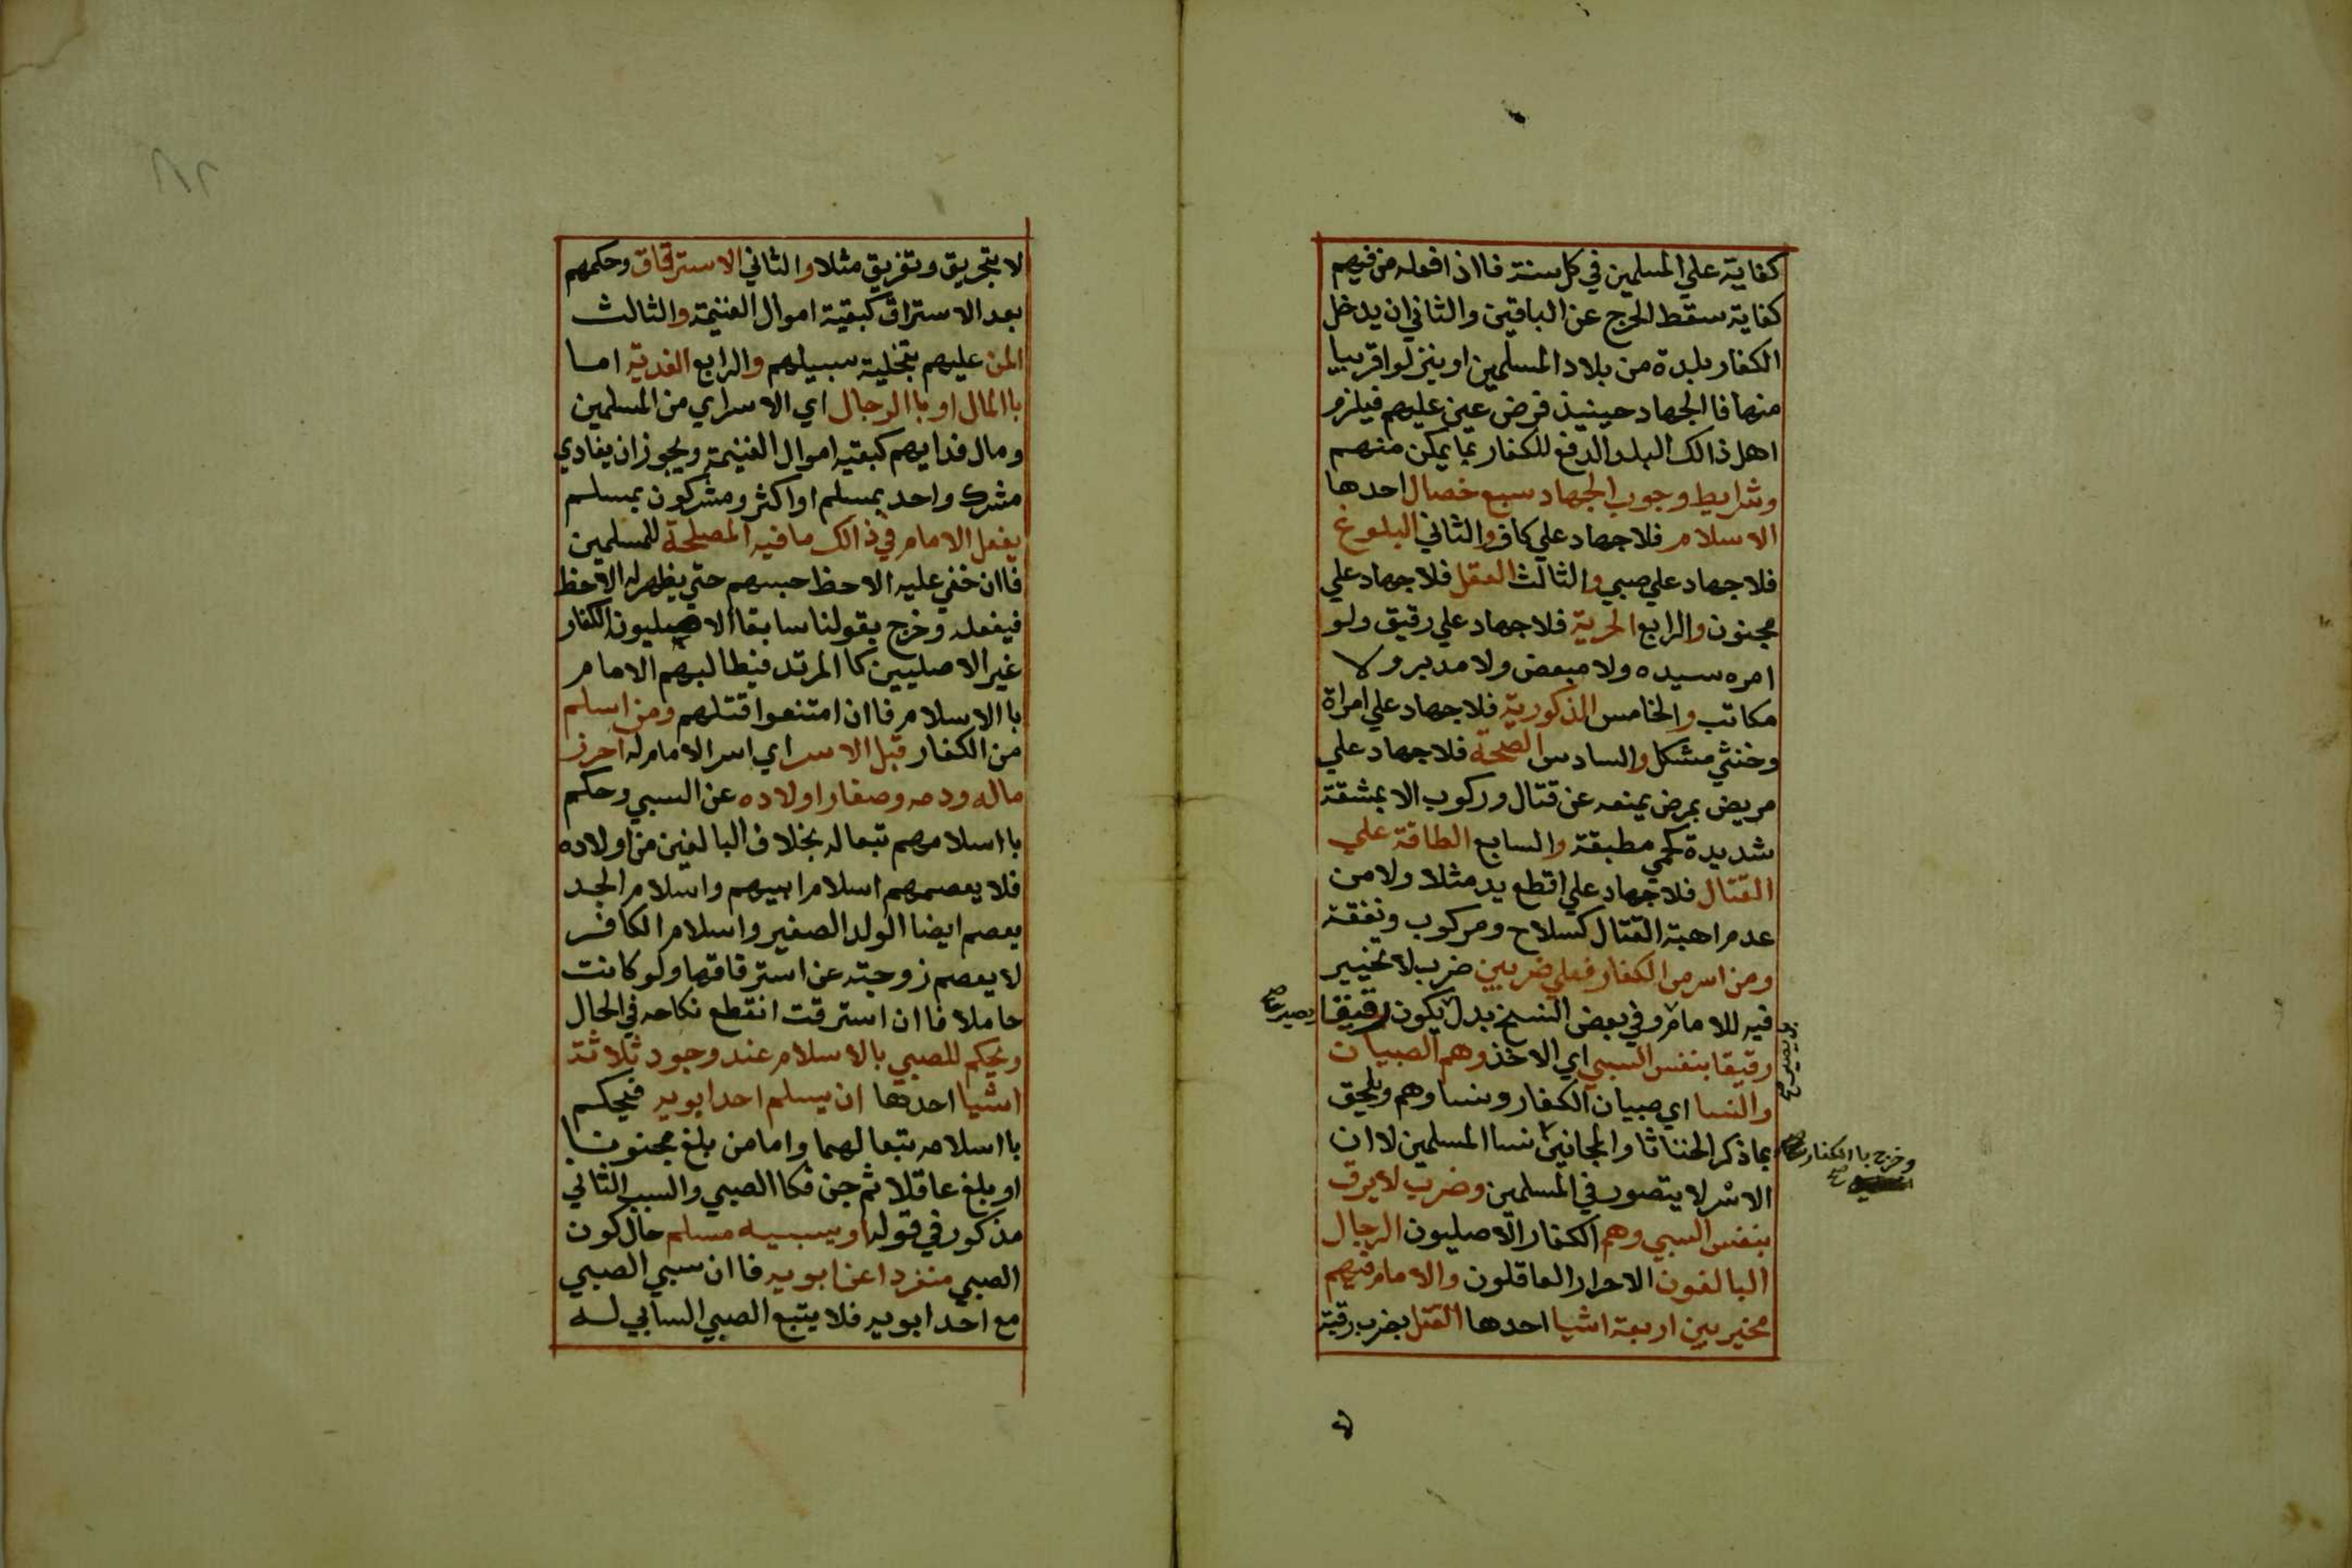 كفاية علي المسلمين في كل سنة فااذا فعله من فيهم
كفاية سقط الحرج عن الباقين والثاني ان يدخل
الكفار بلدة من بلاد المسلمين او ينزلوا قريبا
منها فاالجهاد حينيذ فرض عين عليهم فيلزم
اهل ذالك البلد الدفع للكفار بما يمكن منهم
وشرايط وجوب الجهاد سبع خصال احدها
الاسلام فلا جهاد علي كافر والثاني البلوغ
فلا جهاد علي صبي والثالث العقل فلا جهاد علي
مجنون والرابع الحرية فلا جهاد علي رقيق ولو
امره سيده ولا مبعض ولا مدبر ولا
مكاتب والخامس الذكورية فلا جهاد علي امراة
وخنثي مشكل والسادس الصحة فلا جهاد علي
مريض بمرض يمنعه عن قتال وركوب الا بمشقة
شديدة كحمي مطبقة والسابع الطاقة علي
القتال فلا جهاد علي اقطع يد مثلا ولا من
عدم اهبة القتال كسلاح ومركوب ونفقة
ومن اسر من الكفار فعلي ضربين ضرب لا تخيير
فيه للامام وفي بعض النسخ بدل يكون رقيقا
يصير صح
رقيقا بنفس السبي اي الاخذ وهم الصبيان
والنسا اي صبيان الكفار ونساوهم ويلحق
بما ذكر الخناثا والمجانين نسا المسلمين لا ان
وخرج باالكفار
صح
الاسر لا يتصور في المسلمين وضرب لا يرق
بنفس السبي وهم الكفار الاصليون الرجال
البالغون الاحرار العاقلون والامام فيهم
مخير بين اربعة اشيا احدها القتل بضرب رقبة
لا
٨٢
لا بتحريق وتغريق مثلا والثاني الاسترقاق وحكمهم
بعد الاستراق كبقية اموال الغنيمة والثالث
المن عليهم بتخلية سبيلهم والرابع الفدية اما
باالمال او باالرجال اي الاسراي من المسلمين
ومال فدايهم كبقيه اموال الغنيمة ويجوز ان يفادي
مشرك واحد بمسلم او اكثر ومشركون بمسلم
يفعل الامام في ذالك مافيه المصلحة للمسلمين
فاان خفي عليه الاحظ حبسهم حتي يظهر له الاحظ
فيفعله وخرج بقولنا سابقا الاصليون الكفار
غير الاصليين كاالمرتد فيطالبهم الامام
باالاسلام فاان امتنعوا قتلهم ومن اسلم
من الكفار قبل الاسر اي اسر الامام له احرز
ماله ودمه وصغار اولاده عن السبي وحكم
بااسلامهم تبعا له بخلاف البالغين من اولاده
فلا يعصمهم اسلام ابيهم واسلام الجد
يعصم ايضا الولد الصغير واسلام الكافر
لا يعصم زوجته عن استرقاقها ولو كانت
حاملا فاان استرقت انقطع نكاحه في الحال
ويحكم للصبي بالاسلام عند وجود ثلاثة
اشيا احدها ان يسلم احد ابويه فيحكم
بااسلامه تبعا لهما واما من بلغ مجنونا
او بلغ عاقلا ثم جن فكاالصبي والسبب الثاني
مذكور في قوله او يسبيه مسلم حال كون
الصبي منفردا عن ابويه فاان سبي الصبي
مع احد ابويه فلا يتبع الصبي السابي له